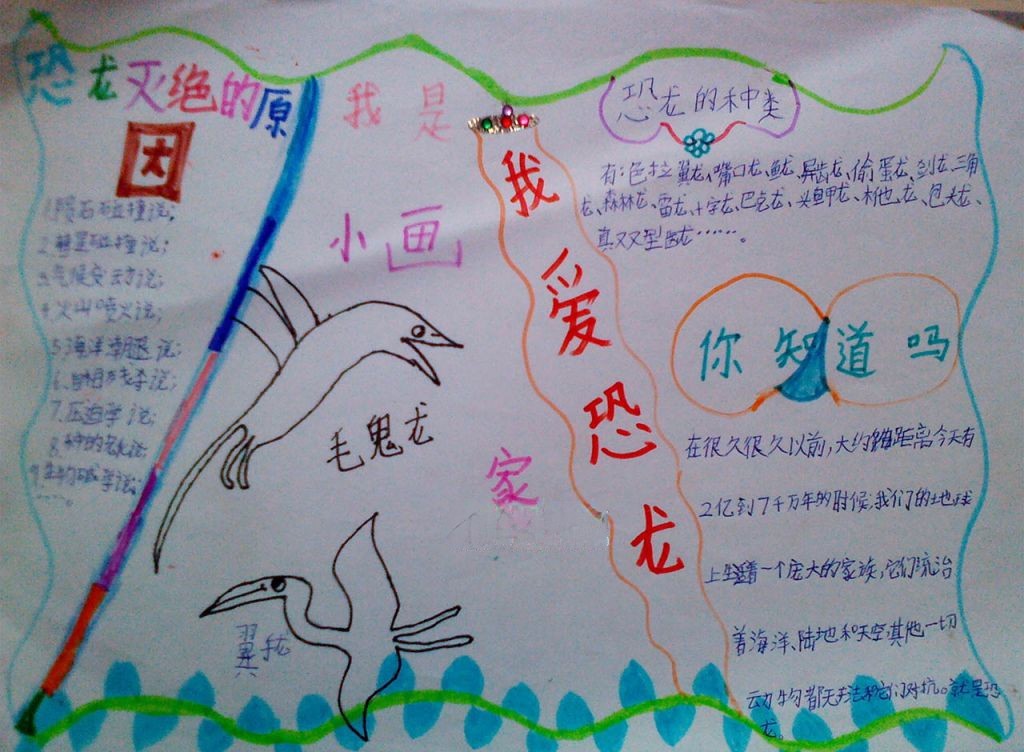 恐龙灭绝的原
因
1.陨石碰撞说;
2.彗星碰撞说;
3.气候变动说;
4.火山喷火说;
5.海洋潮退说;
6.自相残杀说;
7.压迫学说;
8.种的老化说;
9.生物碱学说;
……。
我是
小画
家
毛鬼龙
翼龙
我爱恐龙
恐龙的种类
有:色拉翼龙、嘴口龙、鱼龙、异齿龙、偷蛋龙、剑龙、三角
龙、森林龙、雷龙、十字龙、巴克龙、头甲龙、他龙、包头龙、
真双型齿龙……。
你知道吗
在很久很久以前,大约距离今天有
2亿到7千万年的时候,我们的地球
上生活着一个庞大的家族,它们统治
着海洋、陆地和天空,其他一切
动物都无法和它们对抗。就是恐
龙。